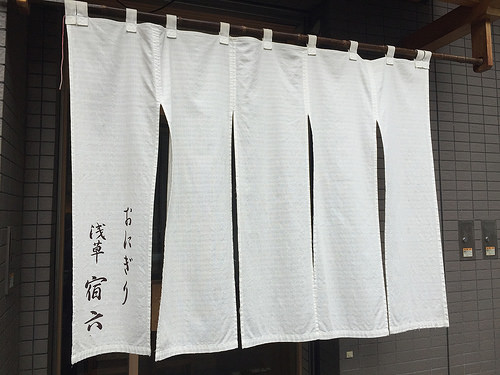 おにぎり
浅草
宿六